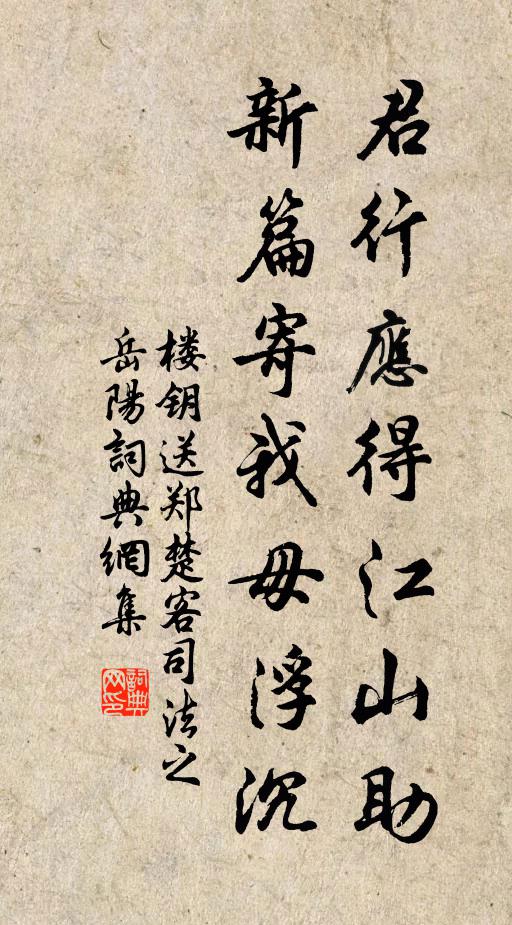 君行應得江山助
新篇寄我毋浮沉
楼钥送郑楚客司法之
岳陽詞典網集
詞典
网印